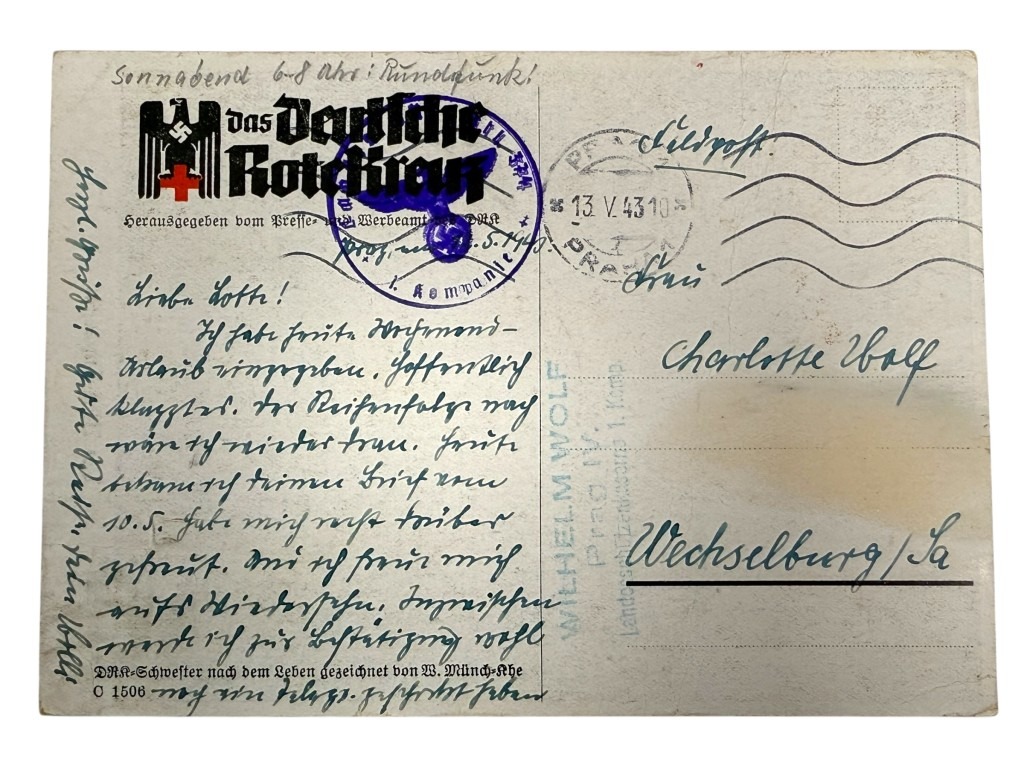 Sonnabend 6-8 Uhr: Rundfunk!
das Deutsche
Rote Kreuz
Herausgegeben vom Presse- und Werbeamt des DRK
1. Kompanie
Prag, .5.1943.
Liebe Lotte!
Ich habe heute Wochenend-
Urlaub eingegeben. Hoffentlich
klappt es. Der Reihenfolge nach
wäre ich wieder dran. Heute
bekam ich deinen Brief vom
10.5. Habe mich recht darüber
gefreut. Und ich freue mich
aufs Wiedersehn. Inzwischen
werde ich zur Bestätigung wohl
noch ein Telegr. geschickt haben
DRK-Schwester nach dem Leben gezeichnet von W. Münch-Khe
C 1506
Herzl. Grüße! Gute Dein Willi
Feldpost
13. V. 43 18
PRAHA
Frau
Charlotte Wolf
Wechselburg/Sa
WILHELM WOLF
Prag IV.
1. Komp